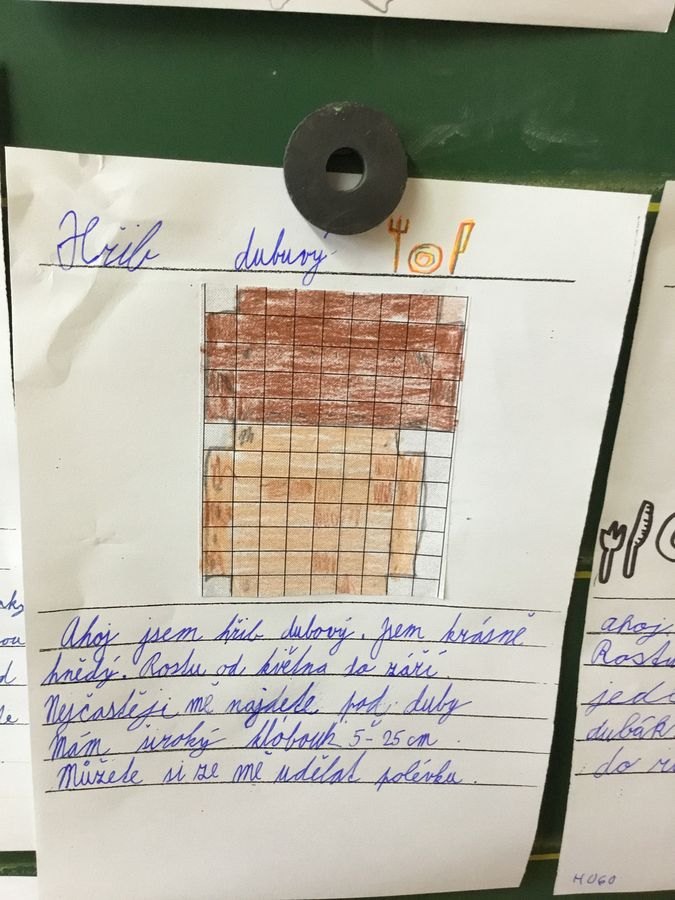 Hřib dubový
Ahoj jsem hřib dubový. Jsem krásně
hnědý. Rostu od května do září.
Nejčastěji mě najdete pod duby
Mám široký klobouk 5-25 cm.
Můžete si ze mě udělat polévku.
ahoj.
Rostu
jede
dubák
HUGO